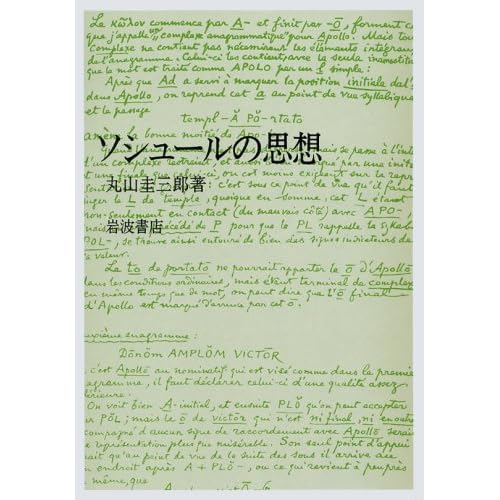 La κῶλον commence par A- et finit par -ō, forment ce
que j'appelle un complexe anagrammatique pour Apollo. Mais tou
complexe ne contient pas nécessairem les éléments intégrau
de l'anagramme. Celui-ci les contient avec la seule inexactitude
que le mot est traité comme APOLO par un l simple:
Après que Ad a servi à marquer la position initiale de l'a
dans Apollo, on reprend cet a au point de vue syllabique
et le passage
templ-Ă PŎ-rtato
amène la bonne moitié de Apo-
ソシュールの思想
丸山圭三郎著
岩波書店
: c'est sous ce point de vue qu'il faut
L de temple, quoique en somme, cet L étant
non-seulement en contact (du mauvais côté) avec APO-,
mais précédé de P pour que le PL rappelle la syllabe
POL-, se trouve ainsi entouré de bien des signes indicateurs de
sa valeur.
La to de portato ne pourrait apporter le ō d'Apollō
dans les conditions ordinaires, mais étant terminal de complexe
en même temps que de mot, on peut dire que l'ō final
d'Apollo est marqué d'avance par cet ō.
uxième anagramme:
Dōnŏm AMPLŎM VICTŎR
c'est Apollo au nominatif qui est visé comme dans le premie
agramme, il faut déclarer celui-ci d'une qualité assez
érieure.
On voit bien A-initial, et ensuite PLŎ qu'on peut accepter
PL; mais le ō de victor qui n'est ni final, ni encontre
compagné d'aucun signe de raccordement avec Apollo serai
e représentation plus que misérable. Son seul point d'appui
ait qu'au point de vue de la suite des sous il arrive aie
en endroit après A + PLŎ-, ou ce qui revient à peu près
même, que